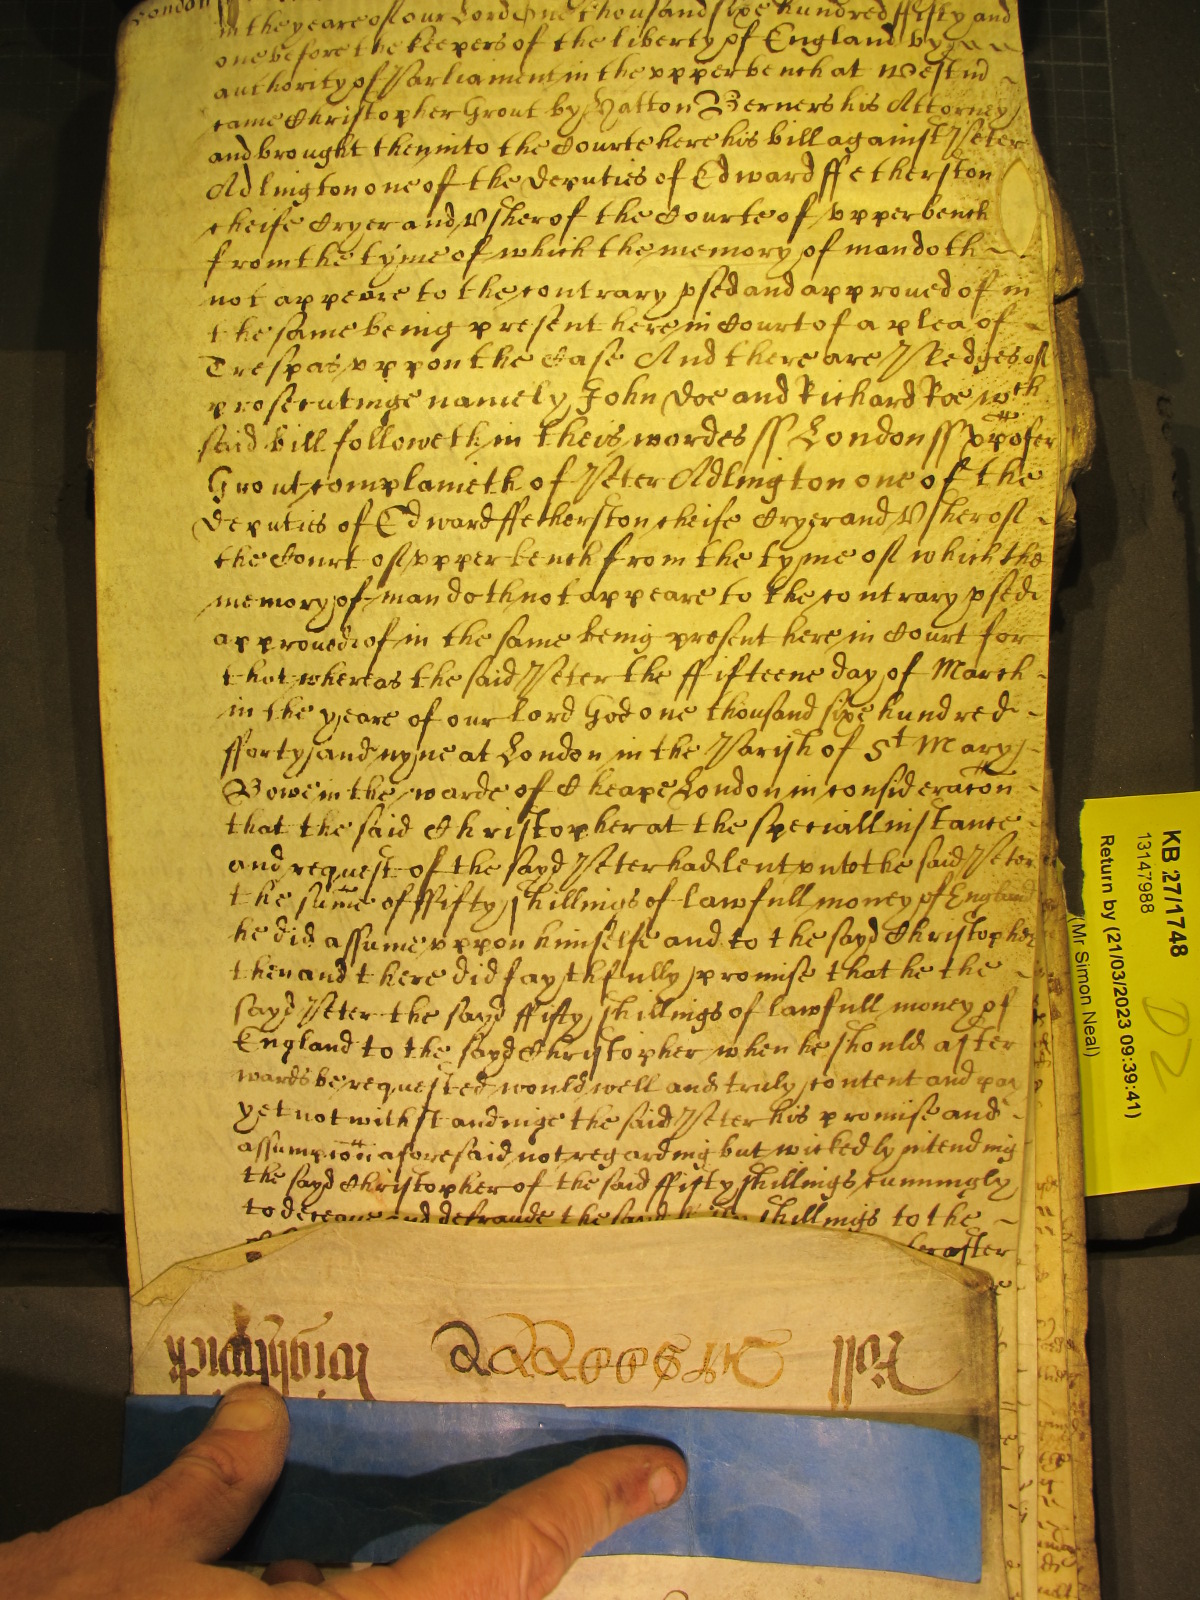 London
in the yeare of our Lord One thousand sixe hundred ffifty and
one before the keepers of the liberty of England by
authority of Parliament in the vpper bench at Westm
came Christopher Grout by Hatton Berners his Attorney
and brought then into the Courte here his bill against Peter
Adlington one of the deputies of Edward ffetherston
cheife Cryer and Vsher of the Courte of vpper bench
from the tyme of which the memory of man doth
not appeare to the contrary vsed and approued of in
the same being present here in Court of a plea of
Trespas vppon the Case And there are Pledges of
prosecutinge namely John Doe and Richard Roe wch
said bill followeth in theis wordes ss London ss Xpofer
Grout complaineth of Peter Adlington one of the
deputies of Edward ffetherston cheife Cryer and Vsher of
the Court of vpper bench from the tyme of which the
memory of man doth not appeare to the contrary vsed
approued of in the same being present here in Court for
that whereas the said Peter the ffifteene day of March
in the yeare of our Lord God one thousand sixe hundred
ffortyand nyne at London in the Parish of St Mary
Bowe in the warde of Cheape London in consideracon
that the said Christopher at the speciall instance
and request of the sayd Peter had lent vnto the said Peter
the sume of ffifty shillings of lawfull money of England
he did assume vppon himselfe and to the sayd Christopher
then and there did faythfully promise that he the
sayd Peter the sayd ffifty shillings of lawfull money of
England to the sayd Christopher when he should after
wards be requested would well and truly content and pay
yet notwithstandinge the said Peter his promise and
assumpcon aforesaid not regarding but wickedly intending
the sayd Christopher of the said ffifty shillings cunningly
to deceave and defraude the said shillings to the
hereafter
Roll
Wightwick
KB 27/1748
13147988
Return by (21/03/2023 09:39:41)
(Mr Simon Neal)
D2